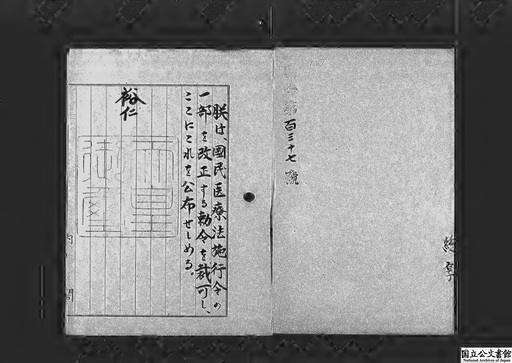 百三十七號
朕は、國民医療法施行令の
一部を改正する勅令を裁可し、
ここにこれを公布せしめる。
裕仁
天皇
御璽
内閣
国立公文書館
National Archives of Japan